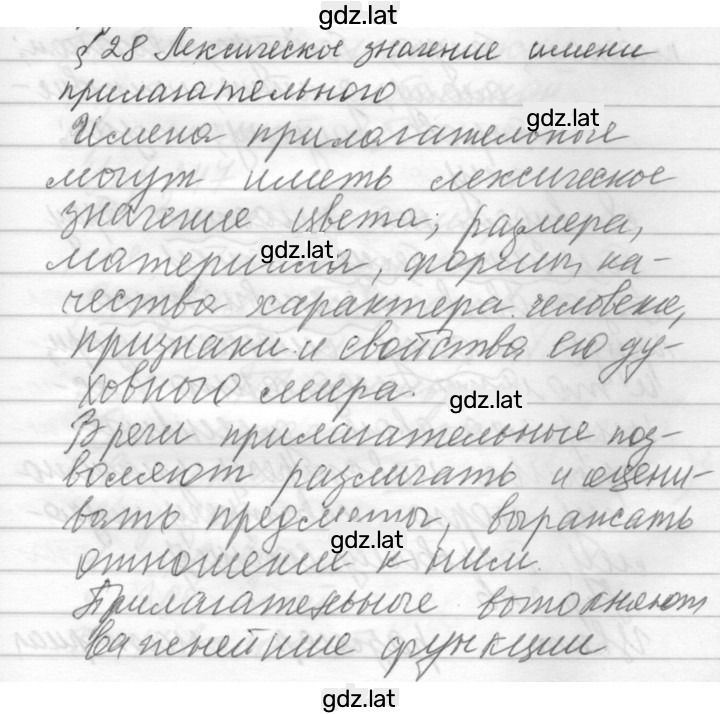 gdz.lat
§ 28 Лексическое значение имени
прилагательного
Имена прилагательные
gdz.lat
могут иметь лексическое
значение цвета, размера,
gdz.lat
материала, формы, ка-
чества характера человека,
признаки и свойства его ду-
ховного мира.
gdz.lat
В речи прилагательные поз-
воляют различать и оцени-
вать предметы, выражать
gdz.lat
отношение к ним.
Прилагательные выполняют
важнейшие функции
gdz.lat